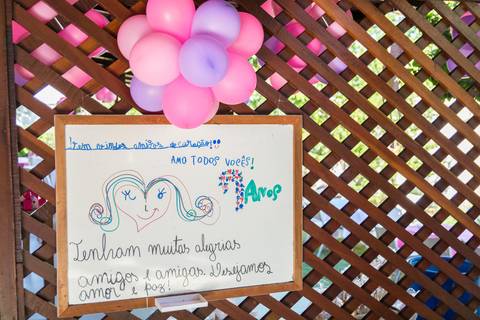 Bem vindos amigos do coração!!
AMO TODOS VOCÊS!
7 Anos
Tenham muitas alegrias
amigos e amigas. Desejamos
amor e paz!